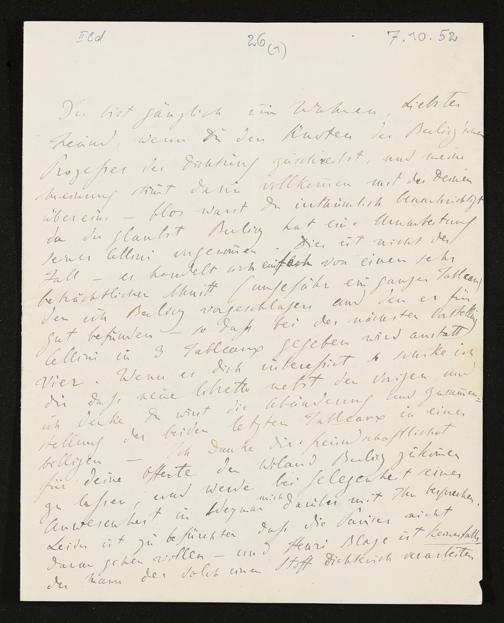 IIcd 26 (1) 7.10.52
Du bist gänzlich im Wahren, Liebster
Freund, wenn Du den Knoten des Berlioz'schen
Progresses der Dichtung zuschreibst, und meine
Meinung stimt darin vollkomen mit der Deinen
überein – blos warst Du irrthümlich benachrichtigt
da du glaubst Berlioz hat eine Umarbeitung
seines Cellini vorgenomen. Dies ist nicht der
Fall – es handelt sich einfach von einem sehr
beträchtlichen Schnitt (ungefähr ein ganzes Tableau)
den ich Berlioz vorgeschlagen und den er für
gut befunden – so daß bei der nächsten Vorstellung
Cellini in 3 Tableaux gegeben wird anstatt
Vier. Wenn es dich interessirt so schicke ich
dir das neue Libretto nebst dem vorigen und
ich denke du wirst die Abänderung und Zusamen=
stellung der beiden letzten Tableaux in eines
billigen – Ich danke dir freundschaftlichst
für deine Offerte den Wiland Berlioz zukomen
zu lassen, und werde bei Gelegenheit seines
Anwesenheit in Weymar mich darüber mit Ihm besprechen.
Leider ist zu befürchten daß die Pariser nicht
daran gehen wollen – und Henri Blaze ist keinesfalls
der Mann der solch einen Stoff dichterisch verarbeiten